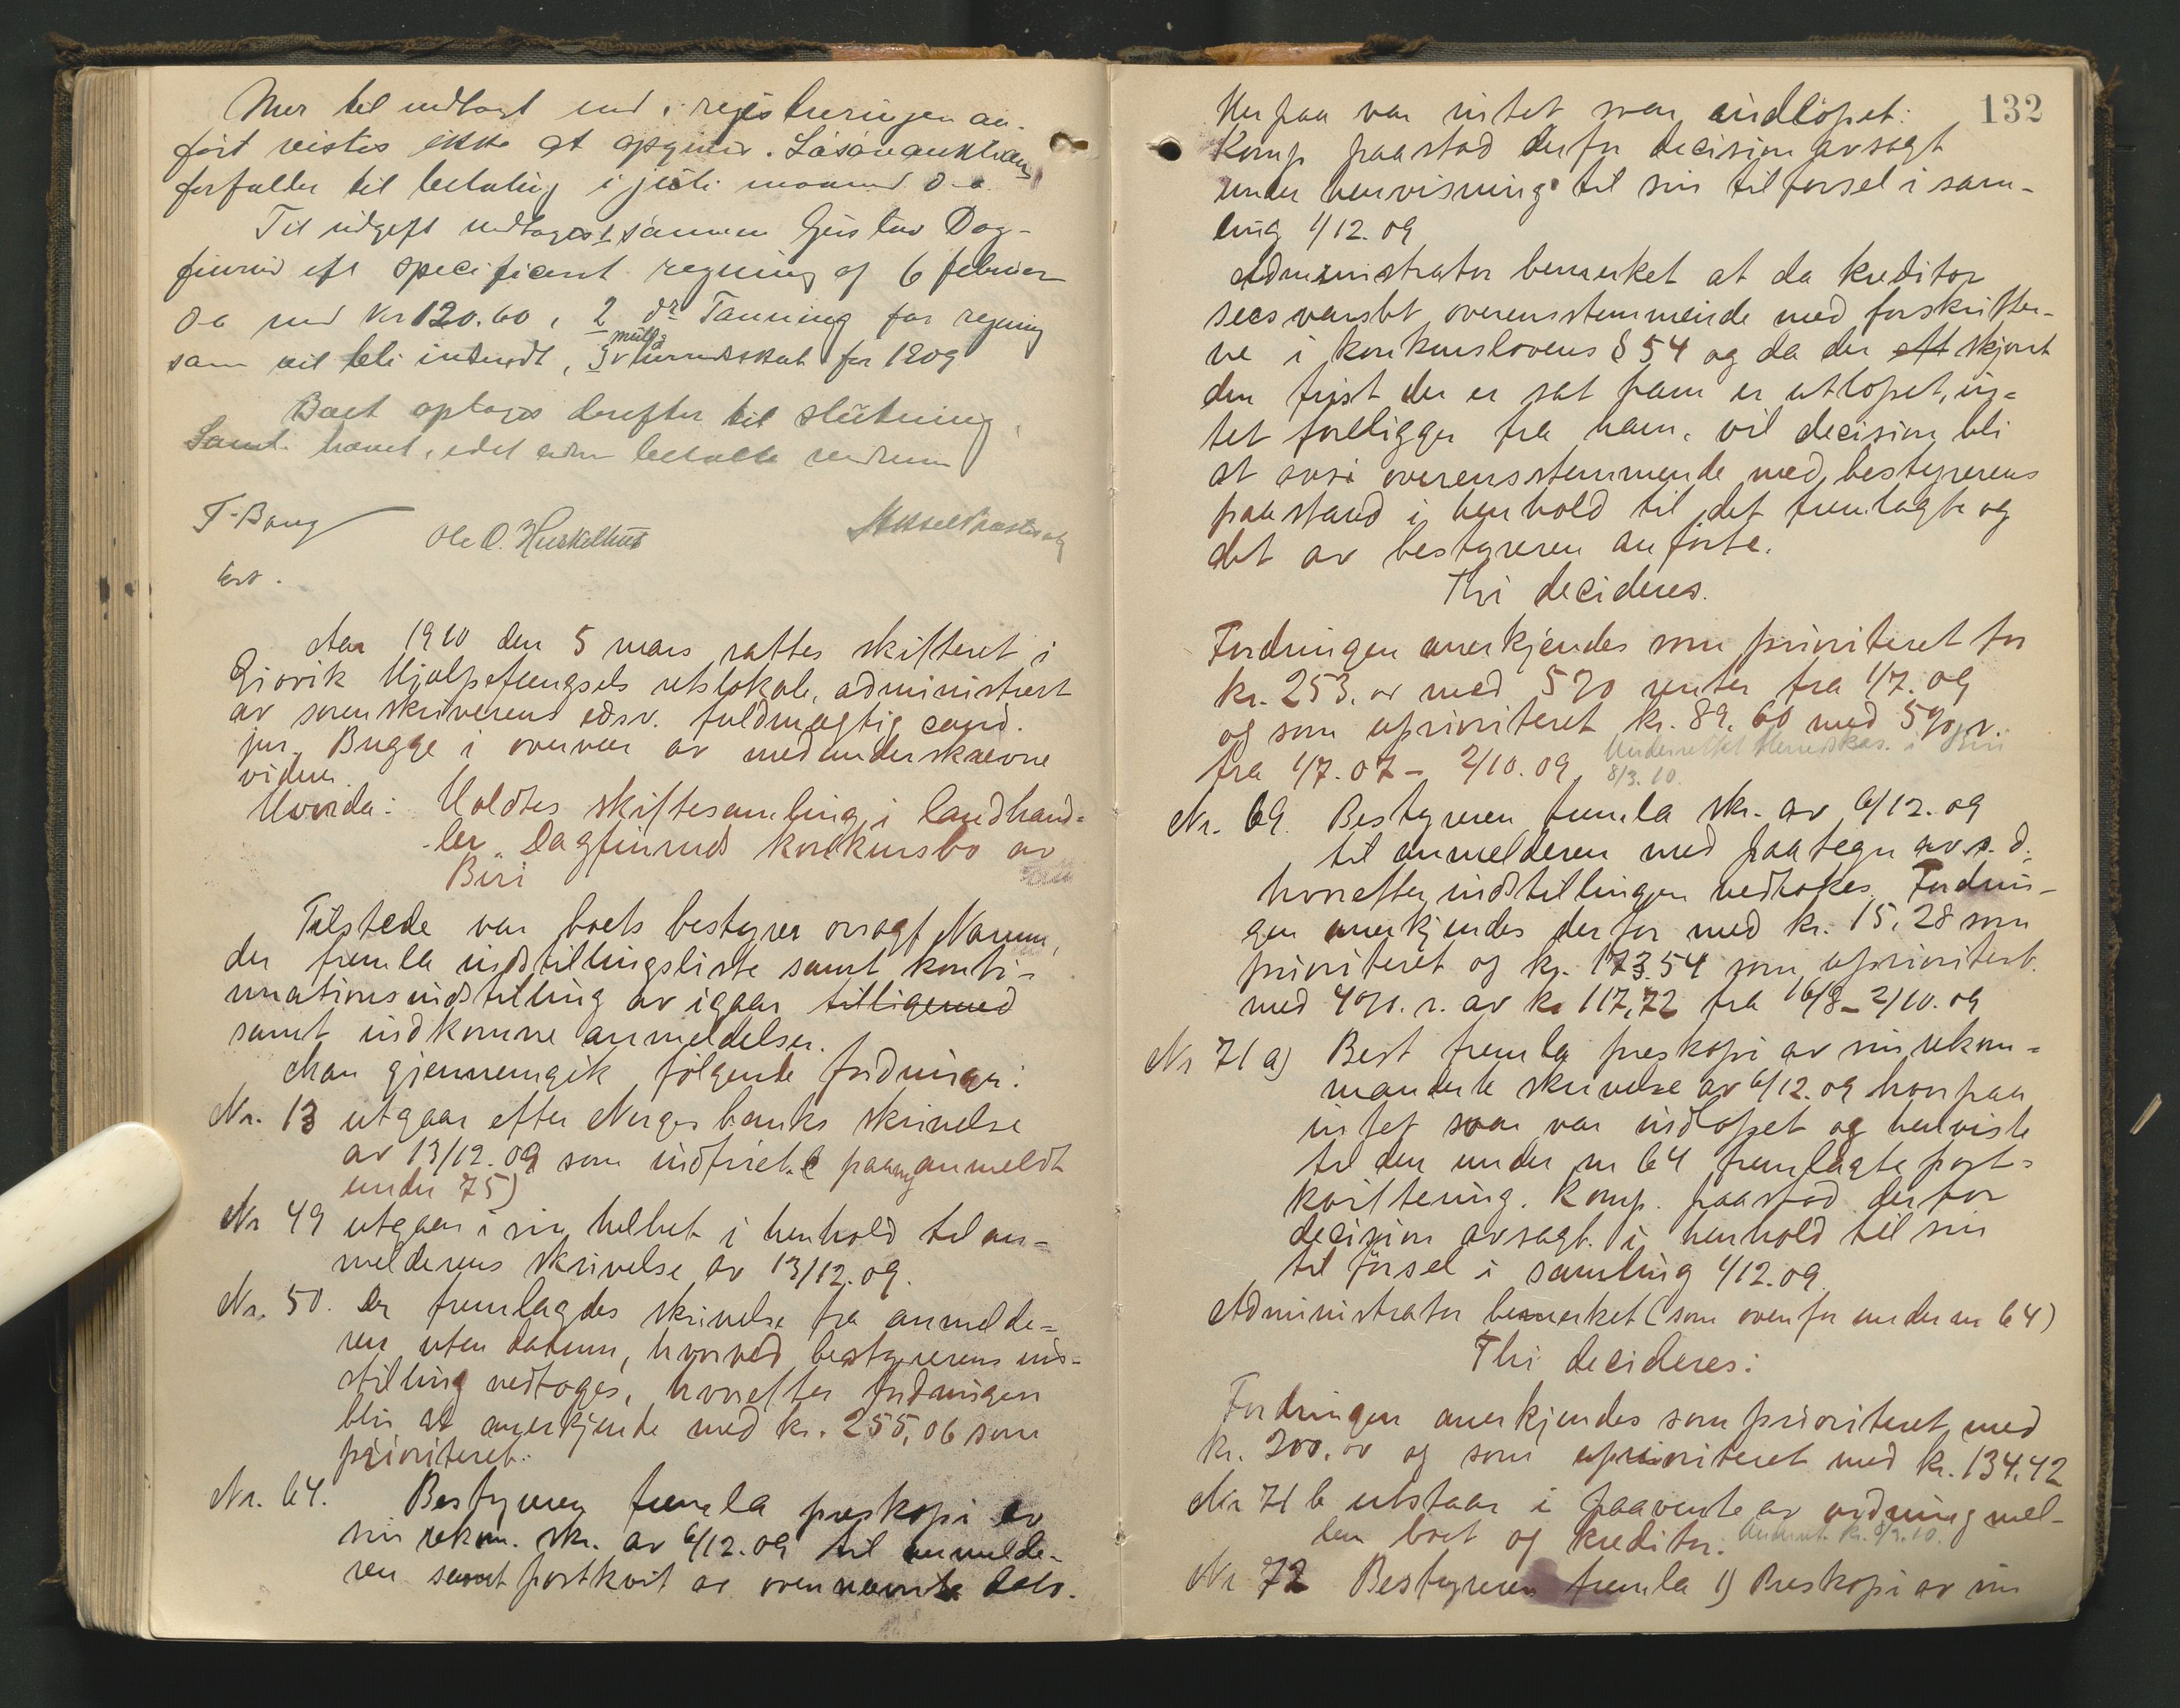 Mer til indtægt end i registreringen an-
ført vistes ikke at opgives. Løsøreauktionen
forfalder til betaling i juli maaned d.a.
Til udgift undtoges 1 sønnen Gustav Dag-
finrud eft specificeret regning af 6 februar
d.a med kr 120.60, 2 dr Tanning for regning
som vil bli indsendt, 3 herredsskat for 1909
Boet optages derefter til slutning
Saml. hævet, idet
F. Bang
Ole O. Huskelhus
Aar 1910 den 5 mars sattes skifteret i
Gjøvik Hjælpefængsels retslokale, administrert
av sorenskriverens edsv. fuldmægtig cand.
jur. Bugge i overvær av medunderskrevne
vidner.
Hvorda: Holdtes skiftesamling i landhand-
ler Dagfinruds konkursbo av
Biri
Tilstede var boets bestyrer orsagf Narum,
der fremla indstillingsliste samt konti-
nuationsindstilling av igaar tilligemed
samt indkomne anmeldelser.
Man gjennemgik følgende fordringer:
Nr. 13 utgaar efter Norges banks skrivelse
av 13/12.09 som indfriet. (paany anmeldt
under 75)
Nr 49 utgaar i sin helhet i henhold til an-
melderens skrivelse av 13/12.09.
Nr. 50. Der fremlagdes skrivelse fra anmelde-
ren uten datum, hvorved bestyrerens ind-
stilling vedtoges, hvorefter fordringen
blir at anerkjende med kr. 255,06 som
prioriteret.
Nr. 64. Bestyreren fremla preskopi av
sin rekom. skr. av 6/12.09 til anmelde-
ren samt postkvit av ovennævnte dato.
132
Herpaa var intet svar indløpet.
Komp paastod derfor decision avsagt
under henvisning til sin tilførsel i sam-
ling 1/12.09
Administrator bemerket at da kreditor
sees varslet overensstemmende med forskrifter-
ne i konkurslovens § 54 og da der eft skjønt
den frist der er sat ham er utløpet, in-
tet foreligger fra ham, vil decision bli
at avsi overensstemmende med bestyrerens
paastand i henhold til det fremlagte og
det av bestyreren anførte.
Thi decideres.
Fordringen anerkjendes som prioriteret for
kr. 253,00 med 5% renter fra 1/7.09
og som uprioriteret kr. 89,60 med 5% r.
fra 1/7.07 - 2/10.09 Underrettet Herredskas. i Biri
8/3.10.
Nr. 69. Bestyreren fremla skr. av 6/12.09
til anmelderen med paategn av s.d.
hvorefter indstillingen vedtokes. Fordrin-
gen anerkjendes derfor med kr. 15,28 som
prioriteret og kr. 173.54 som uprioritert.
med 4% r. av kr 117,72 fra 16/8 - 2/10.09
Nr 71 a) Best fremla preskopi av sin rekom-
manderte skrivelse av 6/12.09 hvorpaa
intet svar var indløpet og henviste
til den under nr 64 fremlagte post-
kvittering. Komp. paastod derfor
decision avsagt i henhold til sin
tilførsel i samling 1/12.09.
Administrator bemerket (som ovenfor under nr 64)
Thi decideres:
Fordringen anerkjendes som prioriteret med
kr. 200,00 og som uprioriteret med kr. 134,42
Nr 71 b utstaar i paavente av ordning mel-
lem boet og kreditor. Underret. kr. 8/3.10.
Nr 72 Bestyreren fremla 1) Preskopi av sin